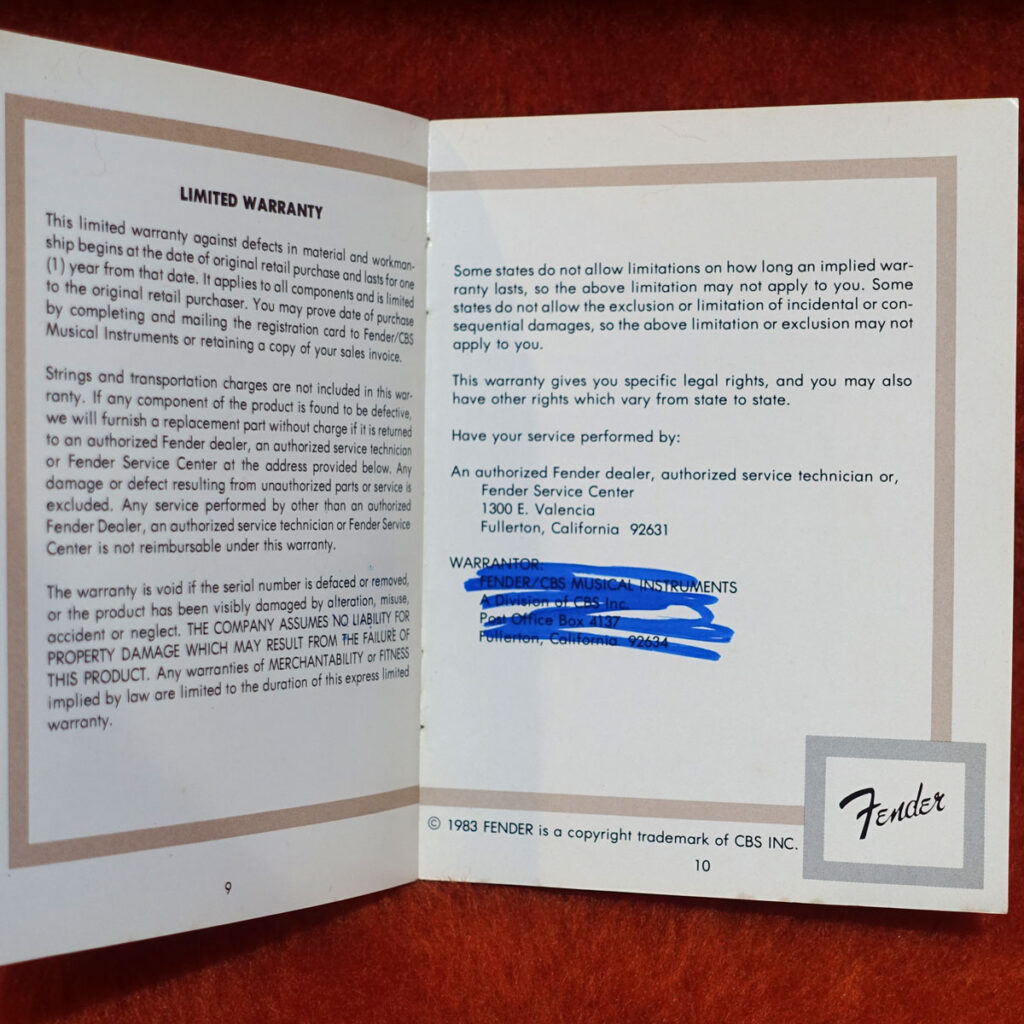 LIMITED WARRANTY
This limited warranty against defects in material and workman-
ship begins at the date of original retail purchase and lasts for one
(1) year from that date. It applies to all components and is limited
to the original retail purchaser. You may prove date of purchase
by completing and mailing the registration card to Fender/CBS
Musical Instruments or retaining a copy of your sales invoice.
Strings and transportation charges are not included in this war-
ranty. If any component of the product is found to be defective,
we will furnish a replacement part without charge if it is returned
to an authorized Fender dealer, an authorized service technician
or Fender Service Center at the address provided below. Any
damage or defect resulting from unauthorized parts or service is
excluded. Any service performed by other than an authorized
Fender Dealer, an authorized service technician or Fender Service
Center is not reimbursable under this warranty.
The warranty is void if the serial number is defaced or removed,
or the product has been visibly damaged by alteration, misuse,
accident or neglect. THE COMPANY ASSUMES NO LIABILITY FOR
PROPERTY DAMAGE WHICH MAY RESULT FROM THE FAILURE OF
THIS PRODUCT. Any warranties of MERCHANTABILITY or FITNESS
implied by law are limited to the duration of this express limited
warranty.
9
Some states do not allow limitations on how long an implied war-
ranty lasts, so the above limitation may not apply to you. Some
states do not allow the exclusion or limitation of incidental or con-
sequential damages, so the above limitation or exclusion may not
apply to you.
This warranty gives you specific legal rights, and you may also
have other rights which vary from state to state.
Have your service performed by:
An authorized Fender dealer, authorized service technician or,
Fender Service Center
1300 E. Valencia
Fullerton, California 92631
WARRANTOR:
FENDER/CBS MUSICAL INSTRUMENTS
A Division of CBS Inc.
Post Office Box 4137
Fullerton, California 92634
Fender
© 1983 FENDER is a copyright trademark of CBS INC.
10